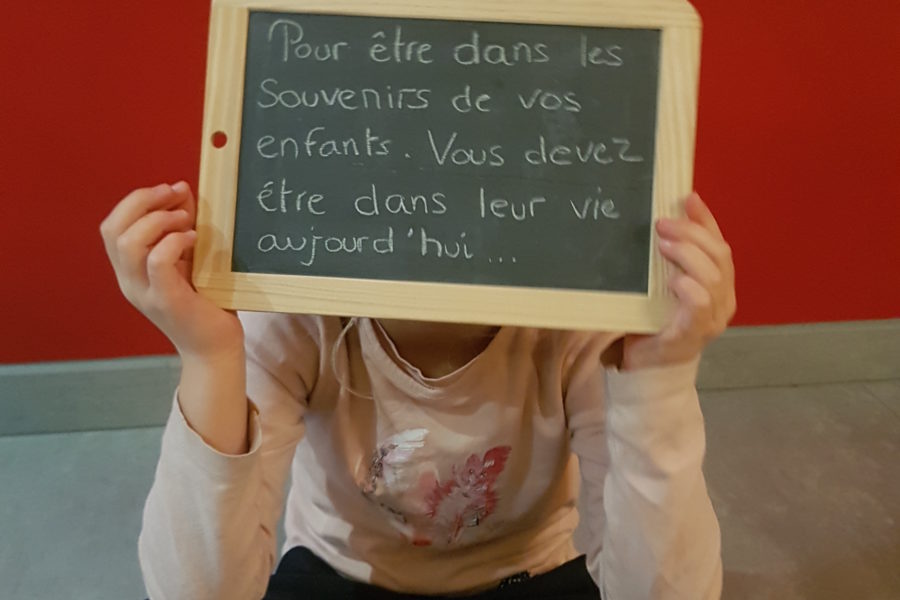 Pour être dans les
Souvenirs de vos
enfants. Vous devez
être dans leur vie
aujourd'hui...